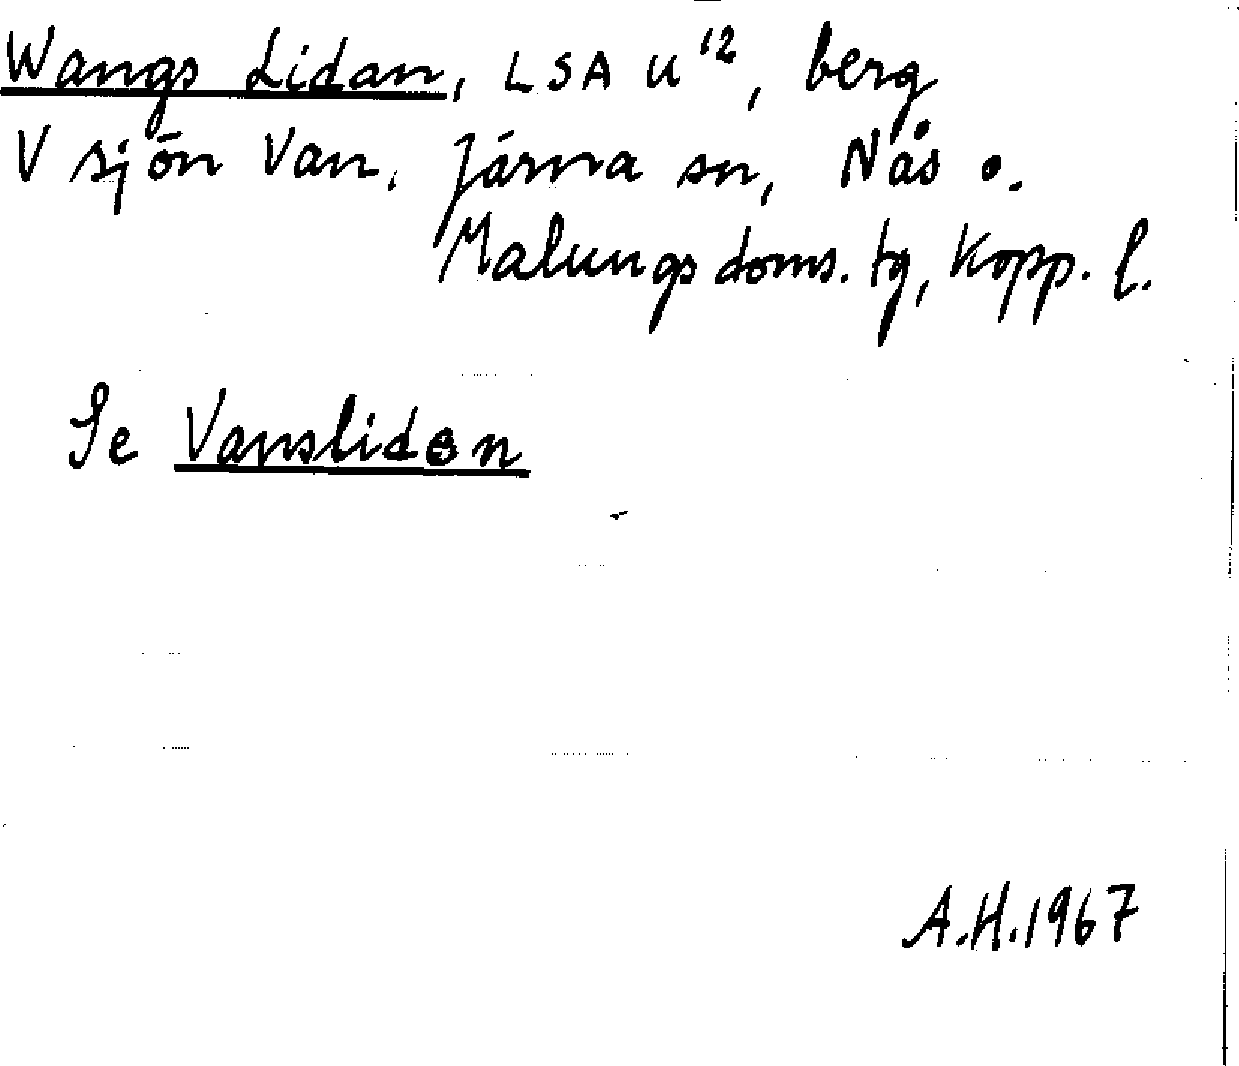 Wangs Lidan, LSA U¹², berg
V sjön Van, Järna sn, Nås o.
Malungs doms. tg, Kopp. l.
Se Vansliden
A.H. 1967